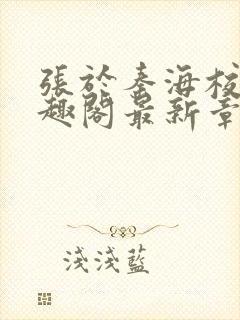 張於秦海校
趣閣最新章
淺淺藍